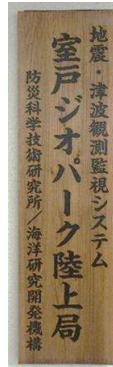 地震・津波観測監視システム
室戸ジオパーク陸上局
防災科学技術研究所／海洋研究開発機構